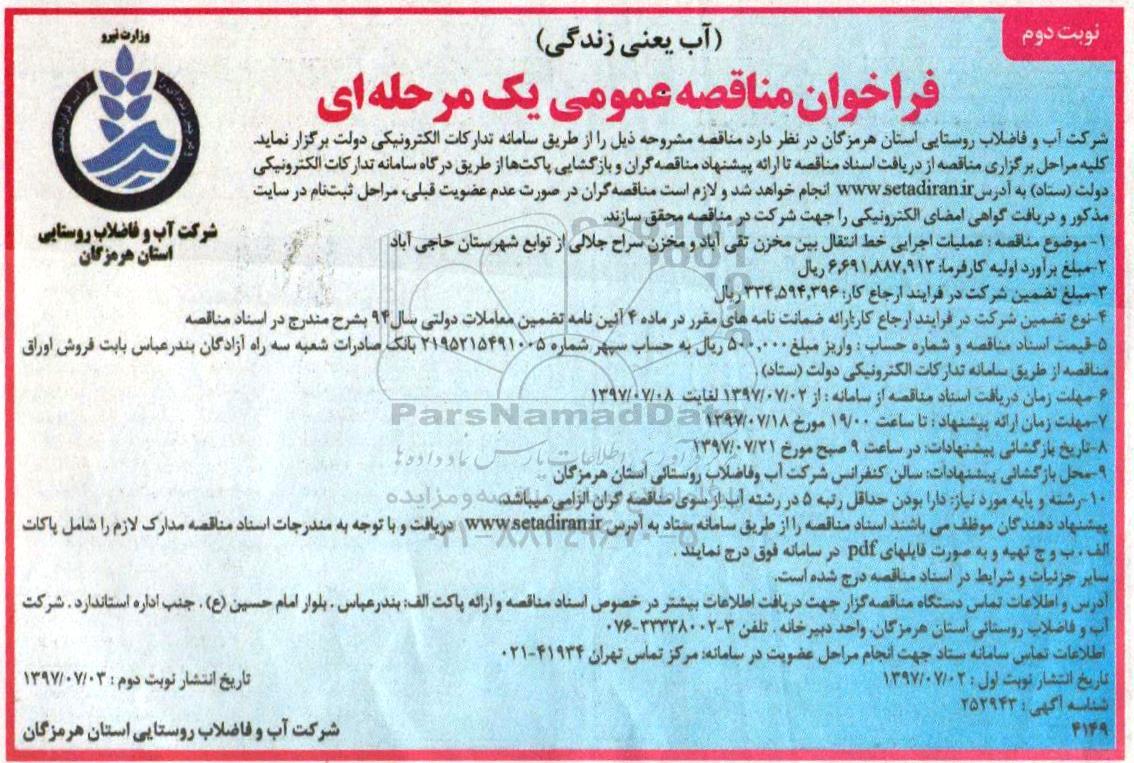 نوبت دوم
(آب یعنی زندگی)
وزارت نیرو
فراخوان مناقصه عمومی یک مرحله‌ای
شرکت آب و فاضلاب روستایی
استان هرمزگان
شرکت آب و فاضلاب روستایی استان هرمزگان در نظر دارد مناقصه مشروحه ذیل را از طریق سامانه تدارکات الکترونیکی دولت برگزار نماید.
کلیه مراحل برگزاری مناقصه از دریافت اسناد مناقصه تا ارائه پیشنهاد مناقصه‌گران و بازگشایی پاکت‌ها از طریق درگاه سامانه تدارکات الکترونیکی
دولت (ستاد) به آدرس www.setadiran.ir انجام خواهد شد و لازم است مناقصه‌گران در صورت عدم عضویت قبلی، مراحل ثبت‌نام در سایت
مذکور و دریافت گواهی امضای الکترونیکی را جهت شرکت در مناقصه محقق سازند.
۱-موضوع مناقصه : عملیات اجرایی خط انتقال بین مخزن تقی آباد و مخزن سراج جلالی از توابع شهرستان حاجی آباد
۲-مبلغ برآورد اولیه کارفرما: ۶,۶۹۱,۸۸۷,۹۱۳ ریال
۳-مبلغ تضمین شرکت در فرایند ارجاع کار: ۳۳۴,۵۹۴,۳۹۶ ریال
۴-نوع تضمین شرکت در فرایند ارجاع کار:ارائه ضمانت نامه های مقرر در ماده ۴ آئین نامه تضمین معاملات دولتی سال۹۴ بشرح مندرج در اسناد مناقصه
۵-قیمت اسناد مناقصه و شماره حساب : واریز مبلغ ۵۰۰,۰۰۰ ریال به حساب سپهر شماره ۲۱۹۵۲۱۵۴۹۱۰۰۵ بانک صادرات شعبه سه راه آزادگان بندرعباس بابت فروش اوراق
مناقصه از طریق سامانه تدارکات الکترونیکی دولت (ستاد) .
۶-مهلت زمان دریافت اسناد مناقصه از سامانه : از ۱۳۹۷/۰۷/۰۲ لغایت ۱۳۹۷/۰۷/۰۸
۷-مهلت زمان ارائه پیشنهاد : تا ساعت ۱۹/۰۰ مورخ ۱۳۹۷/۰۷/۱۸
ParsNamadData
۸-تاریخ بازگشائی پیشنهادات: در ساعت ۹ صبح مورخ ۱۳۹۷/۰۷/۲۱
۹-محل بازگشائی پیشنهادات: سالن کنفرانس شرکت آب وفاضلاب روستائی استان هرمزگان
۱۰-رشته و پایه مورد نیاز: دارا بودن حداقل رتبه ۵ در رشته آب از سوی مناقصه گران الزامی میباشد
پیشنهاد دهندگان موظف می باشند اسناد مناقصه را از طریق سامانه ستاد به آدرس www.setadiran.ir دریافت و با توجه به مندرجات اسناد مناقصه مدارک لازم را شامل پاکات
الف ، ب و ج تهیه و به صورت فایلهای pdf در سامانه فوق درج نمایند .
سایر جزئیات و شرایط در اسناد مناقصه درج شده است.
آدرس و اطلاعات تماس دستگاه مناقصه‌گزار جهت دریافت اطلاعات بیشتر در خصوص اسناد مناقصه و ارائه پاکت الف: بندرعباس . بلوار امام حسین (ع) . جنب اداره استاندارد . شرکت
آب و فاضلاب روستائی استان هرمزگان. واحد دبیرخانه . تلفن ۳-۳۳۳۳۸۰۰۲-۰۷۶
اطلاعات تماس سامانه ستاد جهت انجام مراحل عضویت در سامانه: مرکز تماس تهران ۴۱۹۳۴-۰۲۱
تاریخ انتشار نوبت اول : ۱۳۹۷/۰۷/۰۲
تاریخ انتشار نوبت دوم : ۱۳۹۷/۰۷/۰۳
شناسه آگهی : ۲۵۲۹۴۳
۴۱۴۹
شرکت آب و فاضلاب روستایی استان هرمزگان